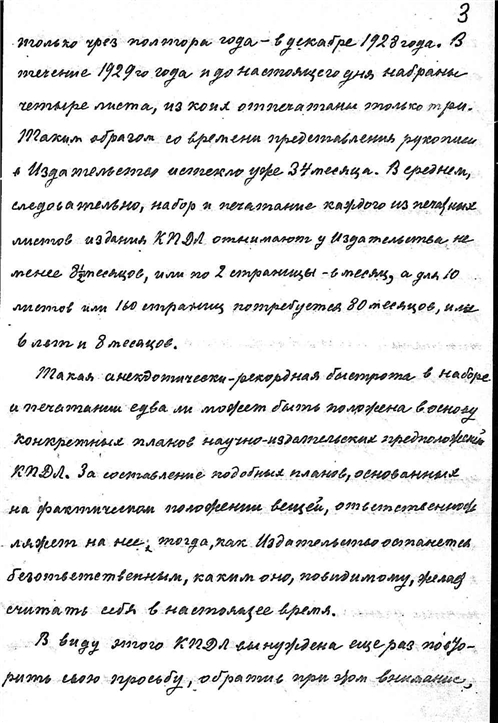 3
только чрез полтора года – в декабре 1928 года. В
течение 1929го года и до настоящего дня набраны
четыре листа, из коих отпечатаны только три.
Таким образом со времени представления рукописи
в Издательство истекло уже 34 месяца. В среднем,
следовательно, набор и печатание каждого из печатных
листов издания КПДЛ отнимают у Издательства не
менее 8½ месяцов, или по 2 страницы – в месяц, а для 10
листов или 160 страниц потребуется 80 месяцов, или
6 лет и 8 месяцов.
Такая анекдотически-рекордная быстрота в наборе
и печатании едва ли может быть положена в основу
конкретных планов научно-издательских предположений
КПДЛ. За составление подобных планов, основанных
на фактическом положении вещей, ответственность
ляжет на нее, тогда, как Издательство останется
безответственным, каким оно, повидимому, желает
считать себя в настоящее время.
В виду этого КПДЛ вынуждена еще раз повто-
рить свою просьбу, обратив при этом внимание,